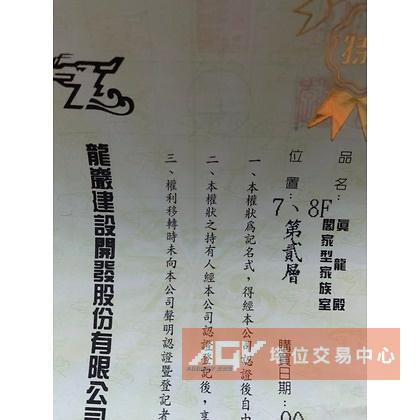 品名：真龍殿
8F闔家型家族室
位置：7、第貳層
購買日期：90
一、本權狀為記名式，得經本公司認證後自由
二、本權狀之持有人經本公司認證登記後，享
三、權利移轉時未向本公司聲明認證暨登記者
龍巖建設開發股份有限公司
AGV 塔位交易中心